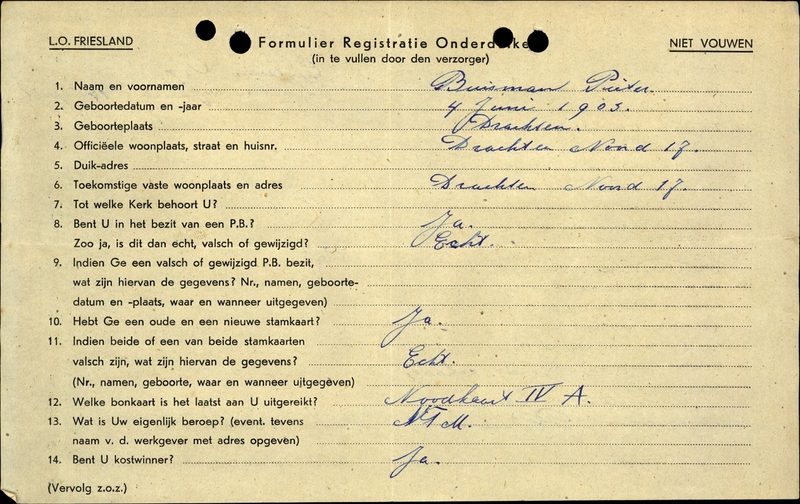 L.O. FRIESLAND
Formulier Registratie NIET VOUWEN
(in te vullen door den verzorger)
1. Naam en voornamen Buisman Pieter.
2. Geboortedatum en -jaar 4 Juni 1903.
3. Geboorteplaats Drachten.
4. Officiëele woonplaats, straat en huisnr. Drachten Noord 17.
5. Duik-adres
6. Toekomstige vaste woonplaats en adres Drachten Noord 17.
7. Tot welke Kerk behoort U?
8. Bent U in het bezit van een P.B.? Ja.
Zoo ja, is dit dan echt, valsch of gewijzigd? Echt.
9. Indien Ge een valsch of gewijzigd P.B. bezit,
wat zijn hiervan de gegevens? Nr., namen, geboorte-
datum en -plaats, waar en wanneer uitgegeven)
10. Hebt Ge een oude en een nieuwe stamkaart? Ja.
11. Indien beide of een van beide stamkaarten
valsch zijn, wat zijn hiervan de gegevens? Echt.
(Nr., namen, geboorte, waar en wanneer uitgegeven)
12. Welke bonkaart is het laatst aan U uitgereikt? Noodkaart IV A.
13. Wat is Uw eigenlijk beroep? (event. tevens N.T.M.
naam v. d. werkgever met adres opgeven)
14. Bent U kostwinner? Ja.
(Vervolg z.o.z.)